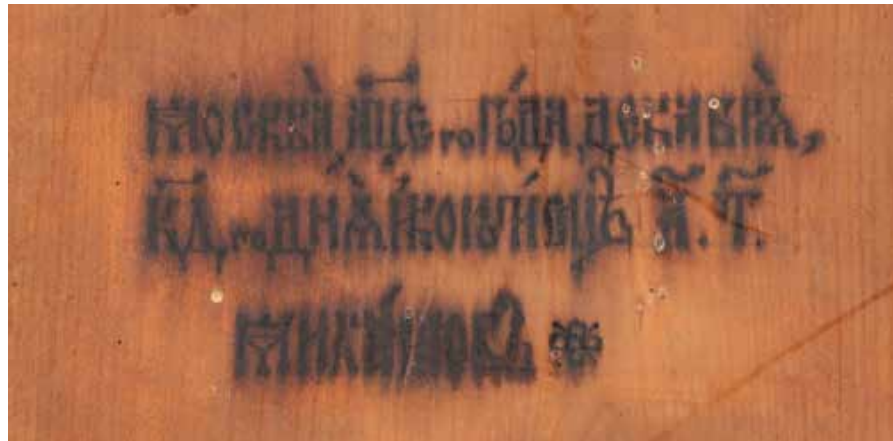 Москвà а҃це го го́да декабрѧ̀,
к҃д го днѧ̀ и҆конопи́сецъ А҃. Т҃.
Миха́йловъ